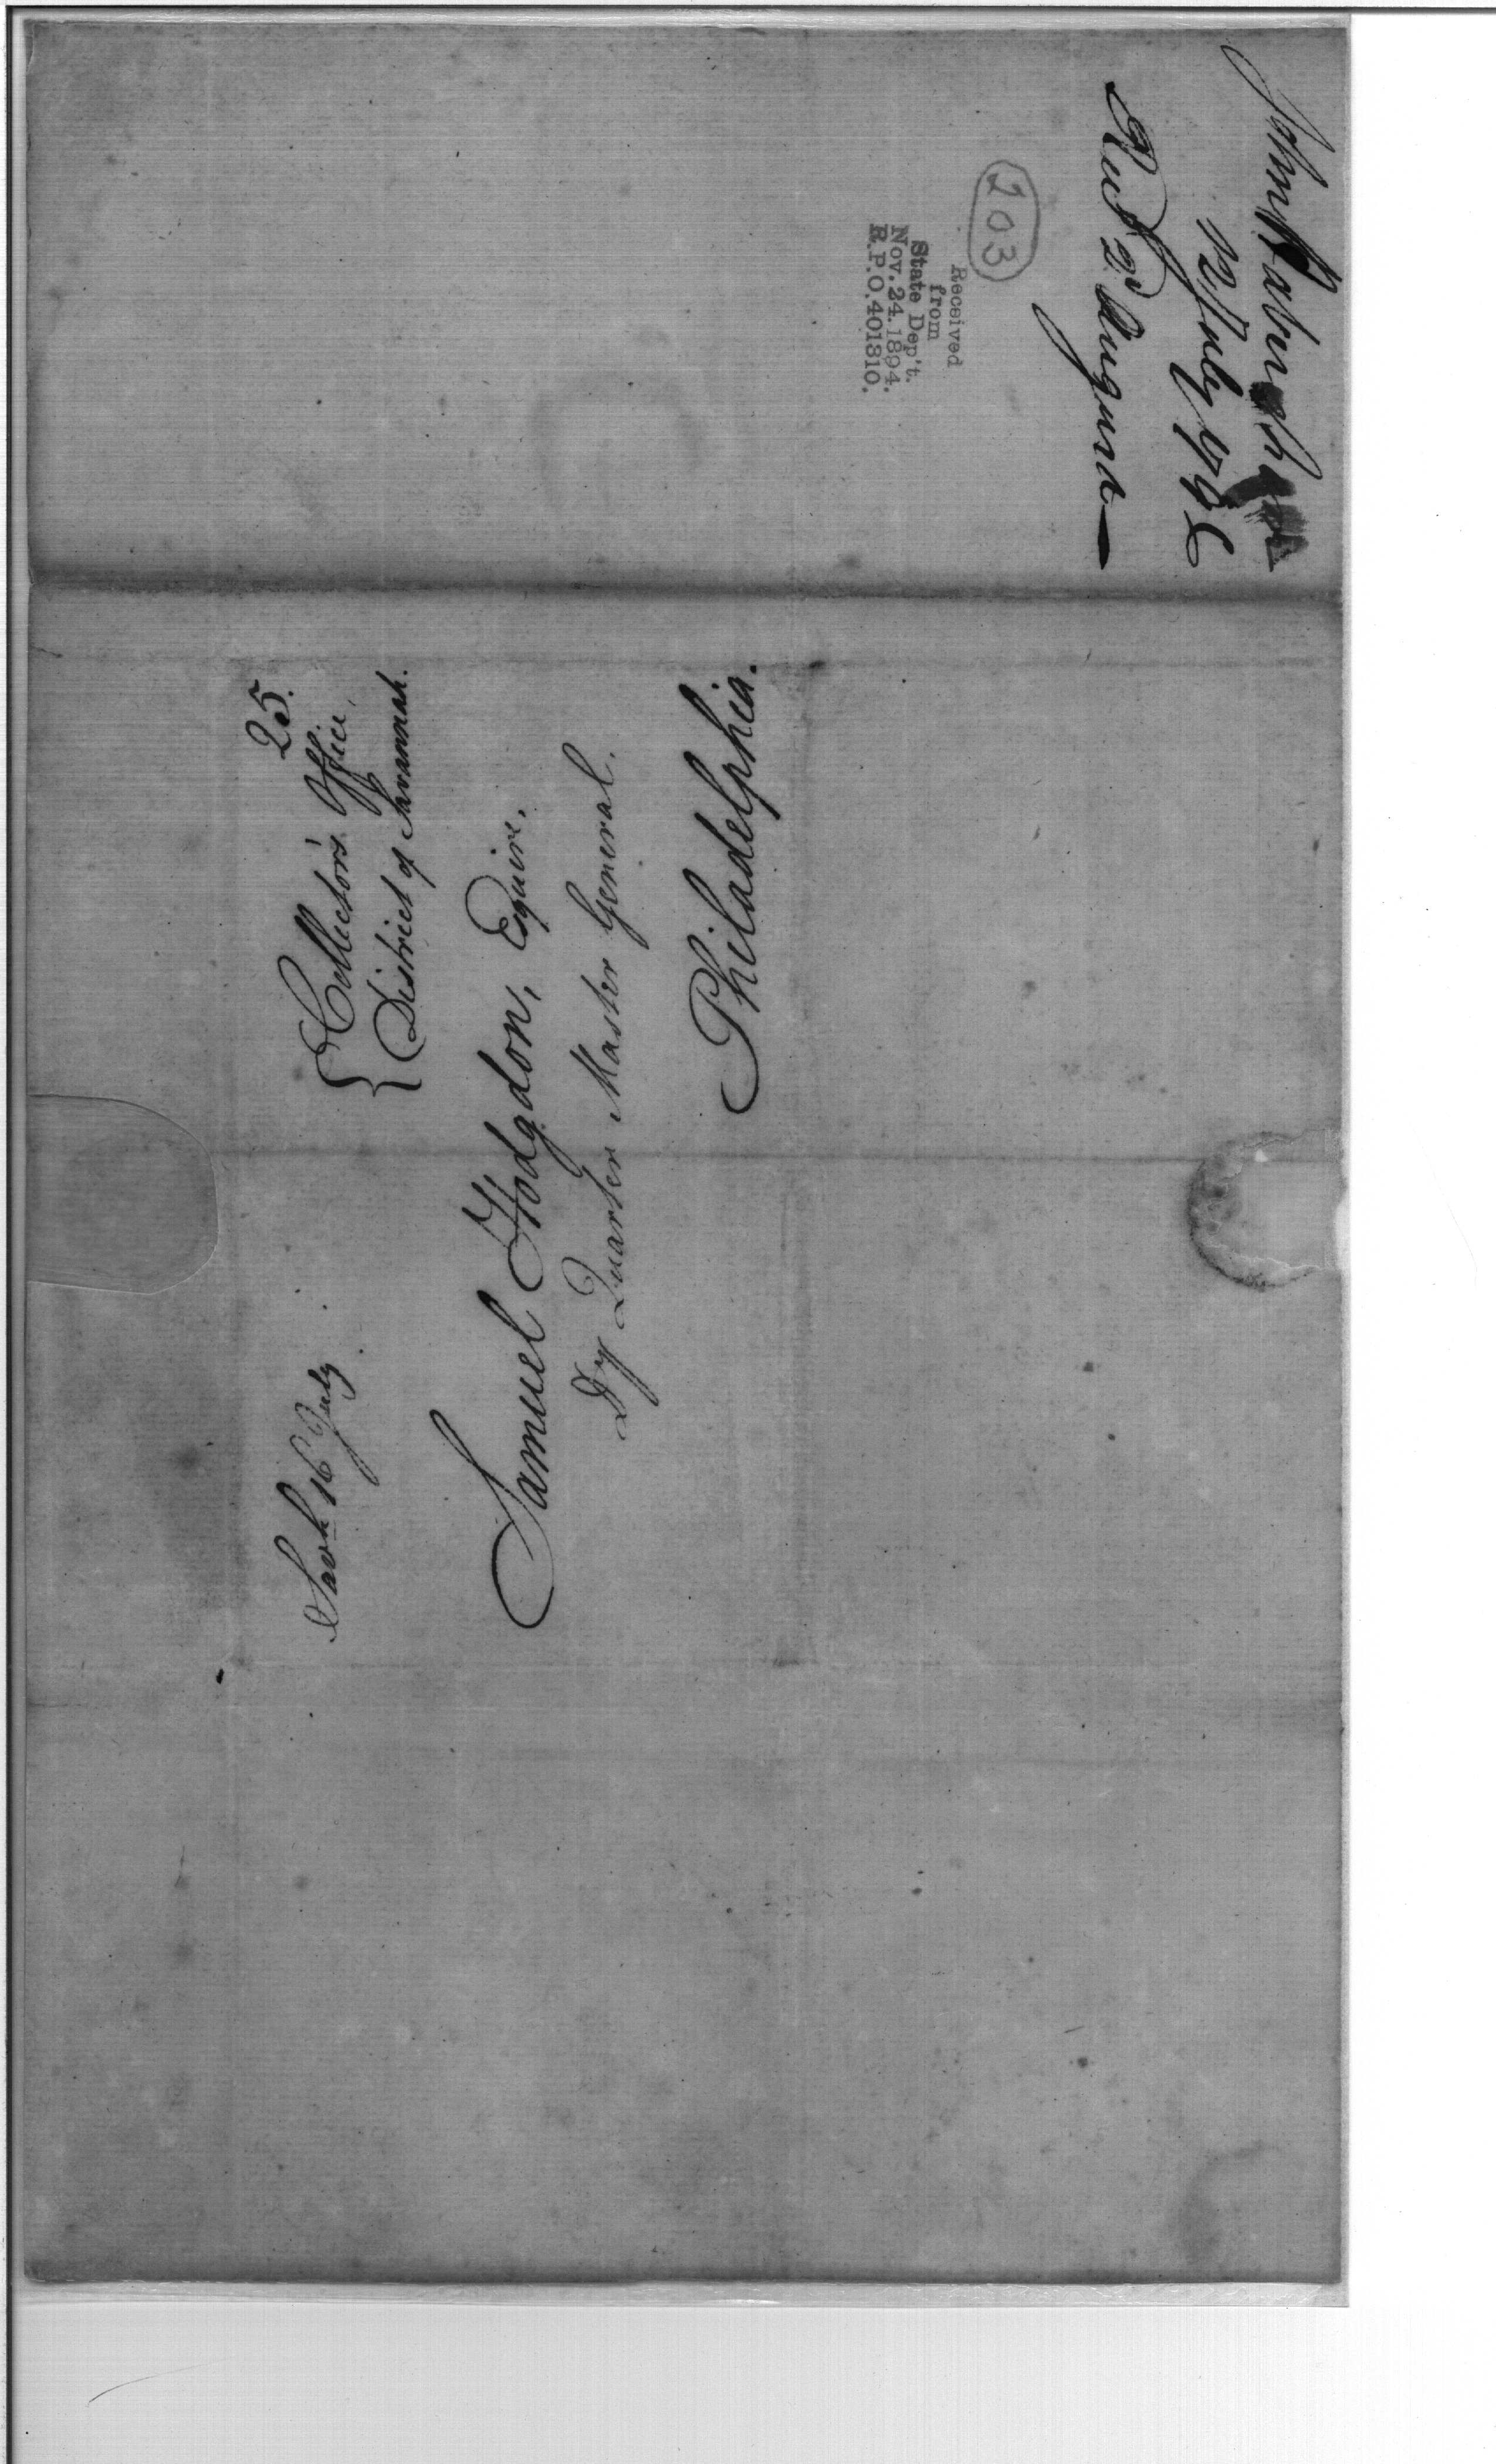 John Habersham
12 July 179
Recd. 2d August
203
Received
from
State Dep't.
Nov. 24. 1894.
R.P.O. 401310.
25.
Collector's Office,
District of Savannah.
Savh 16 July
Samuel Hodgdon, Esquire,
Dy Quarter Master General.
Philadelphia.